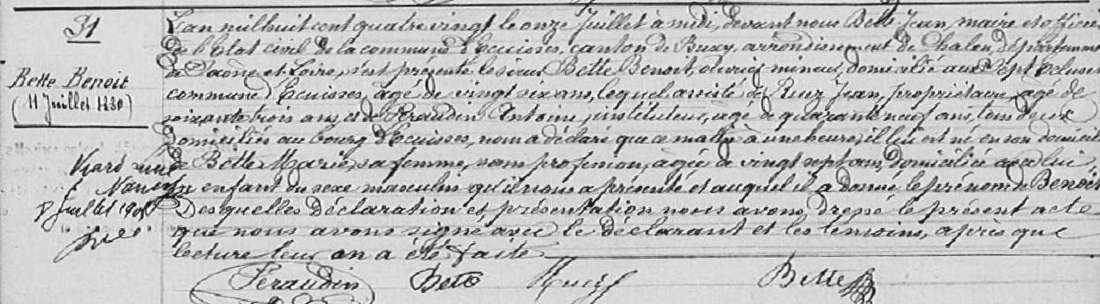 31
Bette Benoit
(11 Juillet 1880)
L'an mil huit cent quatre vingt le onze Juillet à midi, devant nous Bette Jean, maire et officier
de l'état civil de la commune d'Ecuisses, canton de Buxy, arrondissement de Chalon, département
de Saône et Loire, s'est présenté le sieur Bette Benoit, ouvrier mineur, domicilié aux Sept Ecluses
commune d'Ecuisses, âgé de vingt six ans, lequel assisté de Ruez Jean, propriétaire, âgé de
soixante trois ans, et de Feraudin Antoine, instituteur, âgé de quarante neuf ans, tous deux
domiciliés au bourg d'Ecuisses, nous a déclaré que ce matin à une heure, il lui est né en son domicile
de Bette Marie, sa femme, sans profession, âgée de vingt sept ans, domiciliée avec lui
un enfant du sexe masculin qu'il nous a présenté et auquel il a donné le prénom de Benoit
Desquelles déclaration et présentation nous avons dressé le présent acte
que nous avons signé avec le déclarant et les témoins, après que
lecture leur en a été faite
à Nancy
8 Juillet 190
Feraudin Bette Ruez Bette